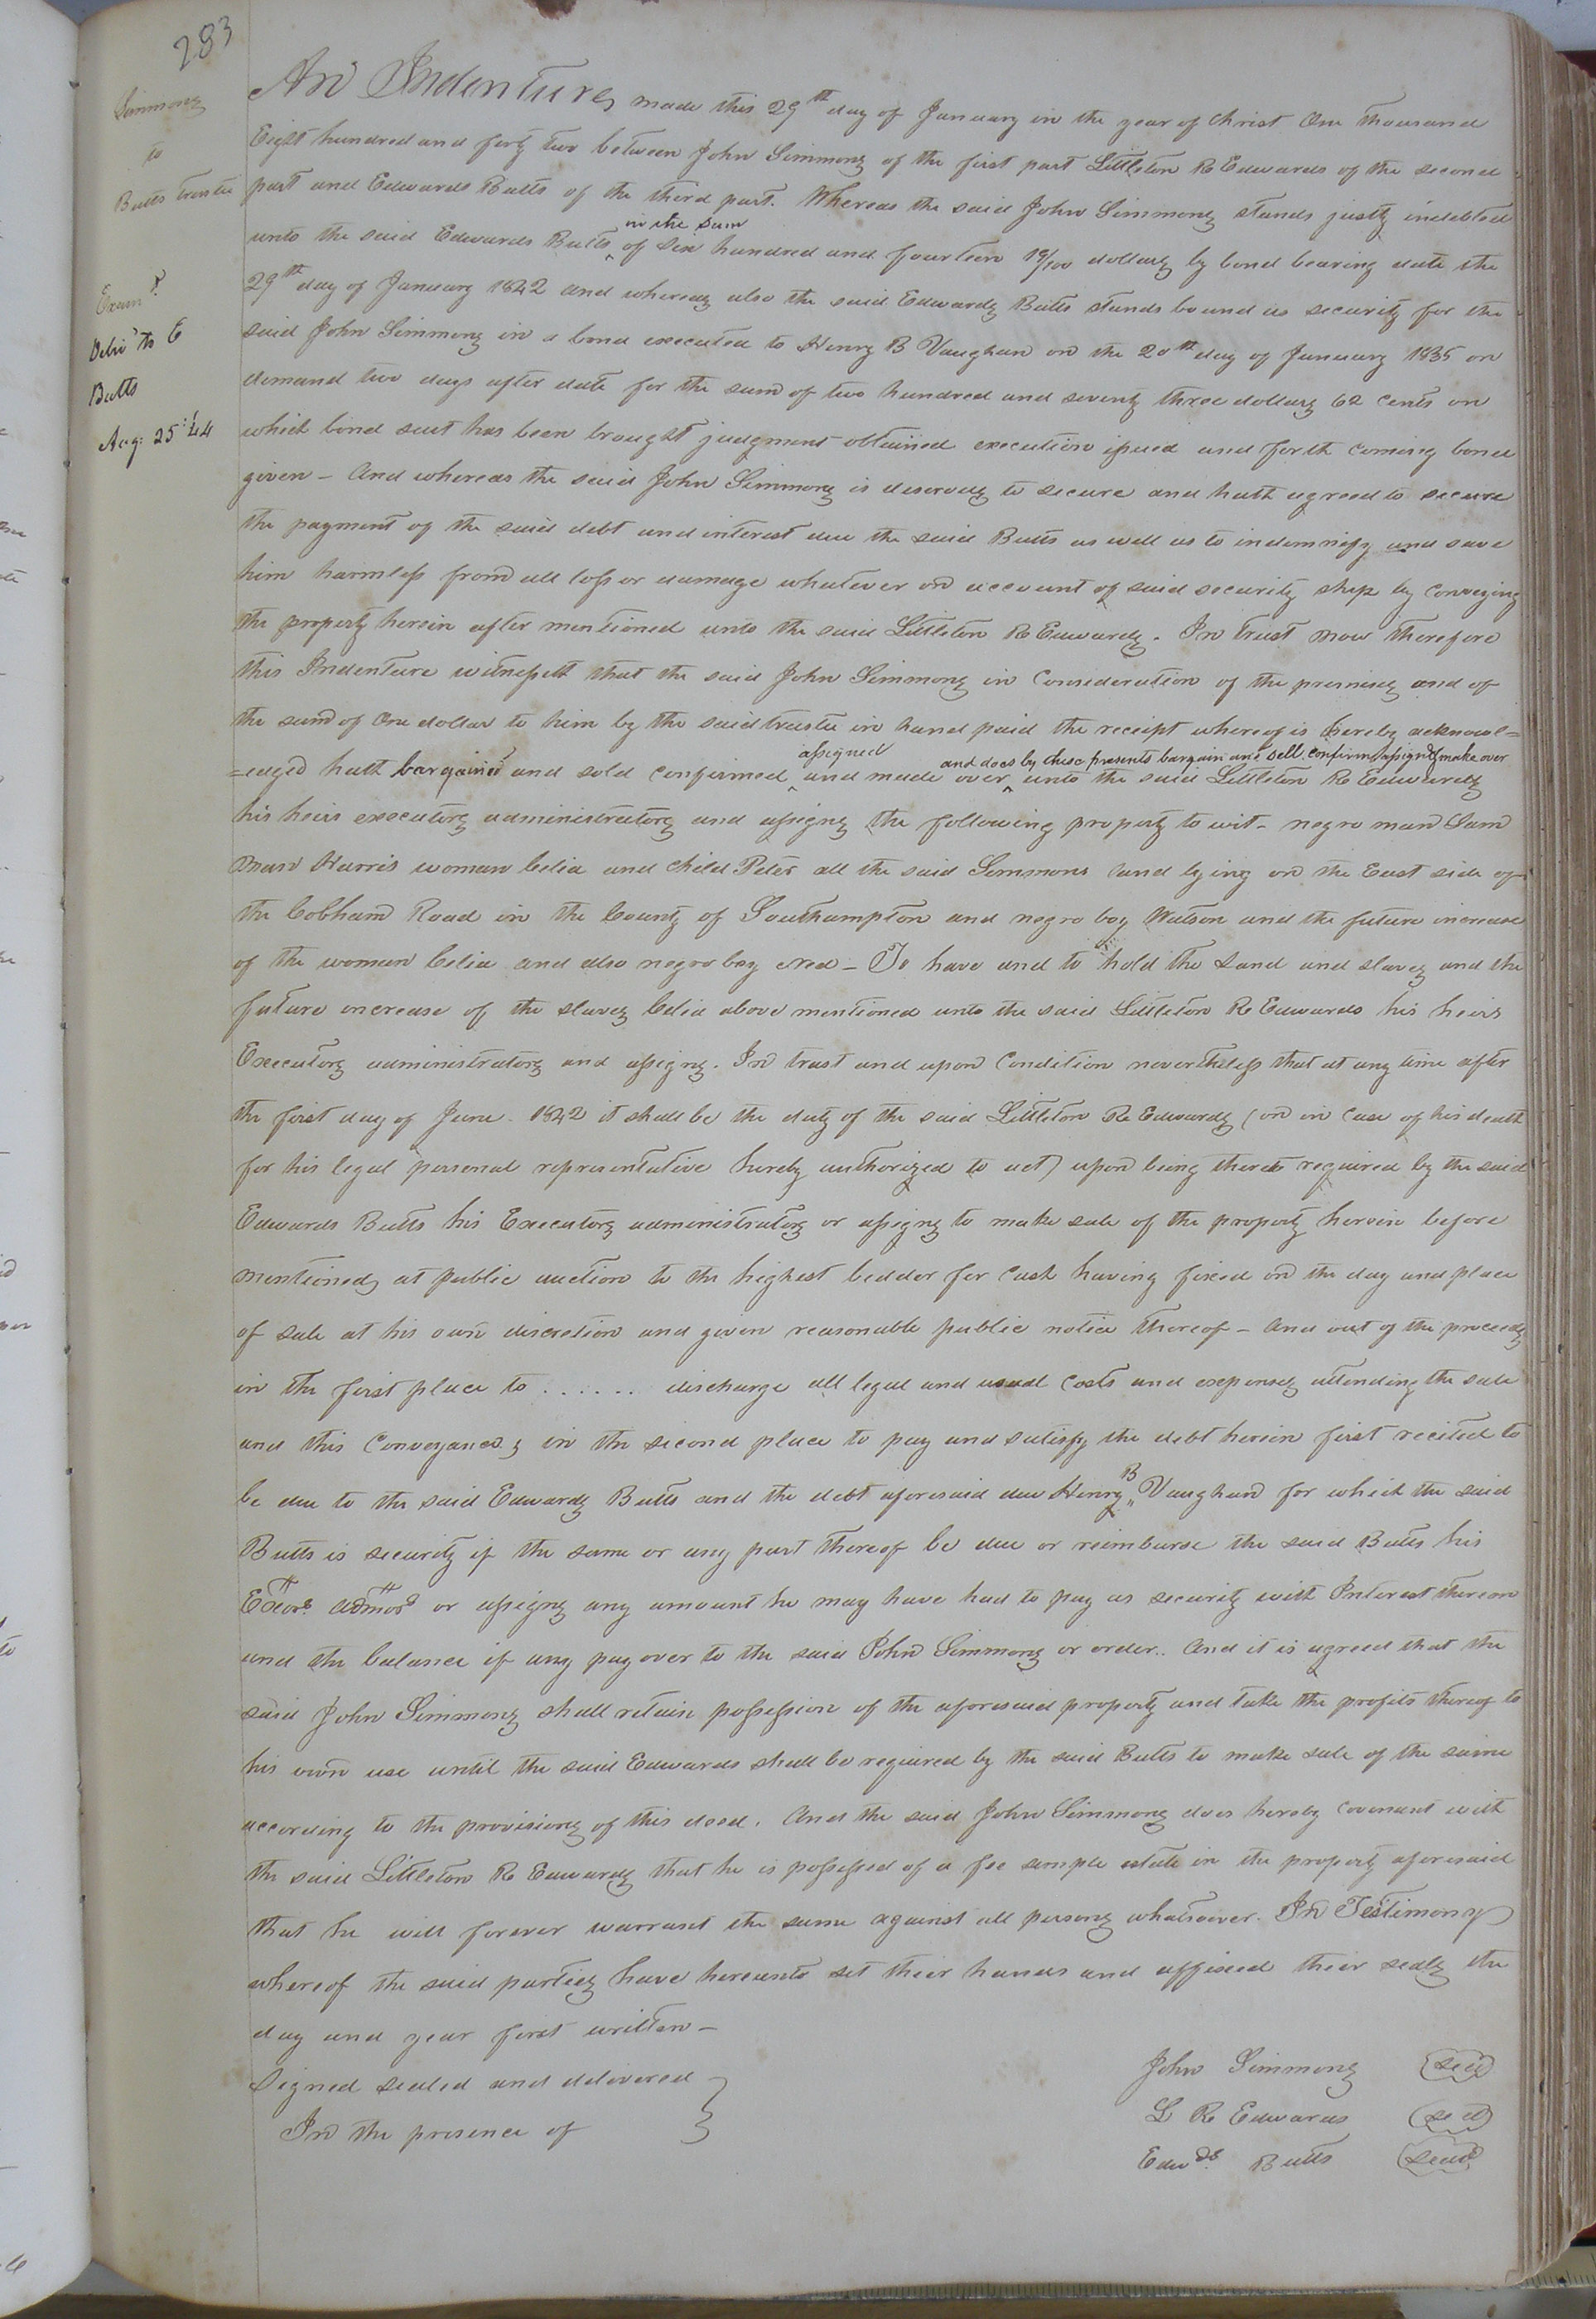 283
Simmons
to
Butts trustee
Exam.d
Deliv.d to E
Butts
Aug: 25.' 44
An Indenture, made this 29th day of January in the year of Christ One thousand
Eight hundred and forty two between John Simmons of the first part Littleton R Edwards of the second
part and Edwards Butts of the third part. Whereas the said John Simmons stands justly indebted
in the sum
unto the said Edwards Butts ^ of six hundred and fourteen 19/100 dollars by bond bearing date the
29th day of January 1842 and whereas also the said Edwards Butts stands bound as security for the
said John Simmons in a bond executed to Henry B Vaughan on the 20th day of January 1835 on
demand two days after date for the sum of two hundred and seventy three dollars 62 cents on
which bond suit has been brought judgment obtained execution issued and forth coming bond
given – And whereas the said John Simmons is desirous to secure and hath agreed to secure
the payment of the said debt and interest due the said Butts as well as to indemnify and save
him harmless from all loss or damage whatever on account of said security ship by conveying
the property herein after mentioned unto the said Littleton R Edwards. In trust now therefore
this Indenture witnesseth that the said John Simmons in Consideration of the premises and of
the sum of One dollar to him by the said trustee in hand paid the receipt whereof is hereby acknowl=
assigned and does by these presents bargain and sell confirm assign & make over
=edged hath bargained and sold confirmed ^ and made over ^ unto the said Littleton R Edwards
his heirs executors administrators and assigns the following property to wit – negro man Sam
man Harris woman Celia and child Peter all the said Simmons land lying on the East side of
the Cobham Road in the County of Southampton and negro boy Watson and the future increase
of the woman Celia and also negro boy Ned – To have and to hold the Land and slaves and the
future increase of the slaves Celia above mentioned unto the said Littleton R Edwards his heirs
Executors administrators and assigns. In trust and upon Condition nevertheless that at any time after
the first day of June 1842 it shall be the duty of the said Littleton R Edwards (or in case of his death
for his legal personal representative hereby authorized to act) upon being thereto required by the said
Edwards Butts his Executors administrators or assigns to make sale of the property herein before
mentioned, at public auction to the highest bedder for Cash having fixed on the day and place
of sale at his own discretion and given reasonable public notice thereof – And out of the proceeds
in the first place to . . . . . . discharge all legal and usual Costs and expenses attending the sale
and this Conveyance, in the second place to pay and satisfy the debt herein first recited to
be due to the said Edwards Butts and the debt aforesaid due Henry B Vaughan for which the said
Butts is security if the same or any part thereof be due or reimburse the said Butts his
Exors admors or assigns any amount he may have had to pay as security with Interest thereon
and the balance if any pay over to the said John Simmons or order.. And it is agreed that the
said John Simmons shall retain possession of the aforesaid property and take the profits thereof to
his own use until the said Edwards shall be required by the said Butts to make sale of the same
according to the provisions of this deed. And the said John Simmons does hereby covenant with
the said Littleton R Edwards that he is possessed of a fee simple estate in the property aforesaid
that he will forever warrant the same against all persons whatsoever. In Testimony
whereof the said parties have hereunto set their hands and affixed their seals the
day and year first written –
Signed sealed and delivered
In the presence of
John Simmons seal
L R Edwards seal
Edwds. Butts seal